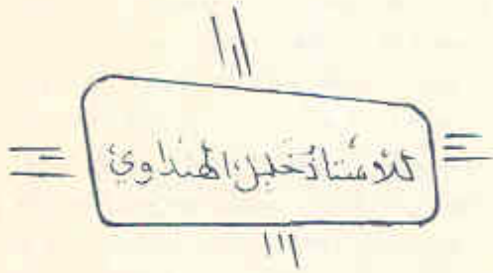 للأستاذ خليل الهنداوي